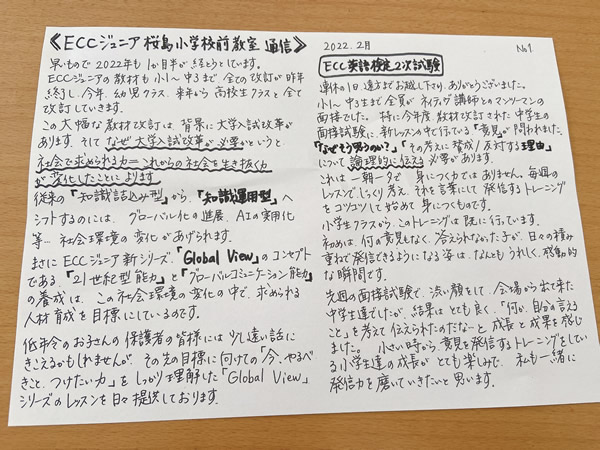 《ECCジュニア桜島小学校前教室 通信》
早いもので2022年も1か月半が経とうとしています。
ECCジュニアの教材も小1～中3まで、全ての改訂が昨年
終了し、今年、幼児クラス、来年から高校生クラスと全て
改訂していきます。
この大幅な教材改訂は、背景に大学入試改革が
あります。そしてなぜ大学入試改革が必要かというと
社会で求められる力＝これからの社会を生き抜く力
が変化したことによります
従来の「知識詰込み型」から、「知識運用型」へ
シフトするのには、グローバル化の進展、AIの実用化
等…社会環境の変化があげられます。
まさにECCジュニア新シリーズ、「Global View」のコンセプト
である、「21世紀型能力」と「グローバルコミュニケーション能力」
の養成は、この社会環境の変化の中で、求められる
人材育成を目標にしているのです。
低年令のお子さんの保護者の皆様には少し遠い話に
きこえるかもしれませんが、その先の目標に向けての「今、やるべ
きこと、つけたい力」をしっかり理解した「Global View」
シリーズのレッスンを日々提供しております。
2022.2月
No1
ECC英語検定2次試験
連休の1日、遠方までお越し下さり、ありがとうございました。
小1～中3まで全員がネイティヴ講師とのマンツーマンの
面接でした。特に今年度教材改訂された中学生の
面接試験に、新レッスンの中で行っている「意見」が問われました。
「なぜそう思うのか？」「その考えに賛成/反対する理由」
について論理的に伝える必要があります。
これは一朝一夕で身につく力ではありません。毎週の
レッスンでじっくり考え、それを言葉にして発信するトレーニング
をコツコツして始めて身につくものです。
小学生クラスから、このトレーニングは既に行っています。
初めは、何の意見もなく、答えられなかった子が、日々の積み
重ねで発信できるようになる姿は、なんともうれしく、感動的
な瞬間です。
先週の面接試験で、渋い顔をして、会場から出て来た
中学生達でしたが、結果はとても良く、「何か、自分の言える
こと」を考えて伝えられたのだな～と成長と成果を感じ
ました。小さい時から意見を発信するトレーニングをしてい
る小学生達の成長がとても楽しみで、私も一緒に
発信力を磨いていきたいと思います。